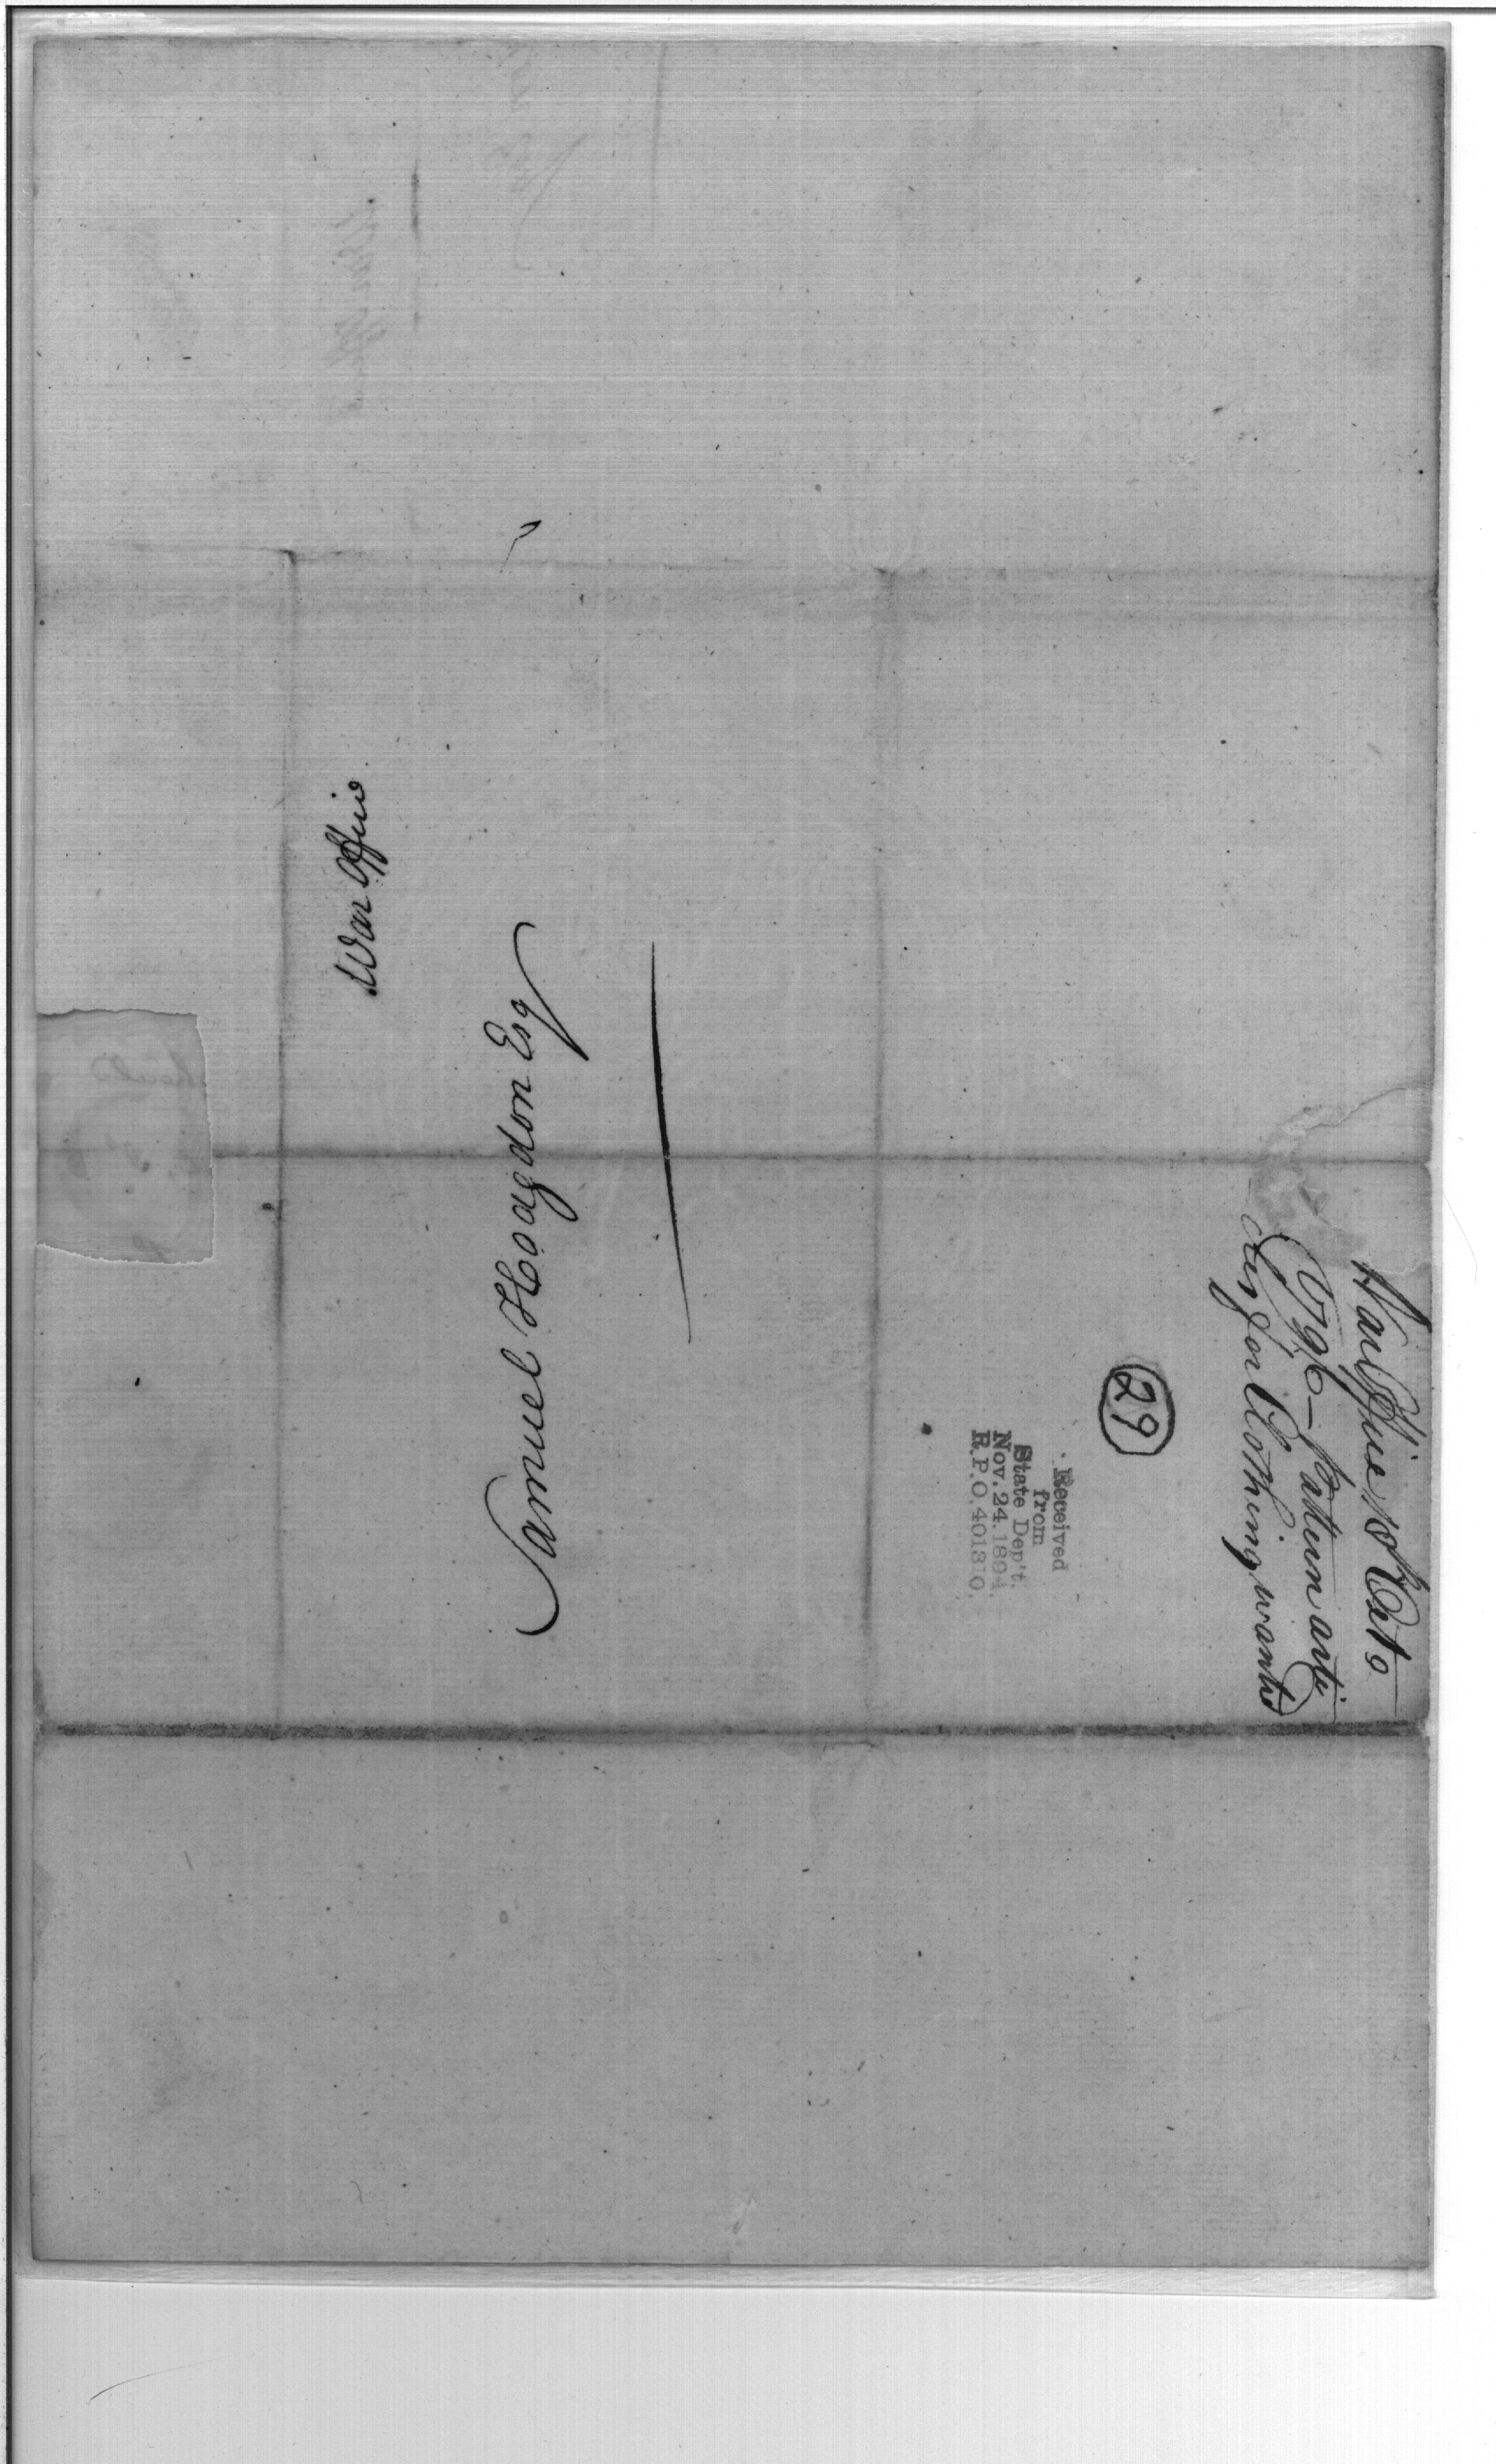 War Office
Samuel Hodgdon Esq
War Office 18 Octo
1796 — Pattern arti
cles for Clothing wanted
29
Received
from
State Dep't.
Nov. 24. 1894.
R.P.O. 401310.